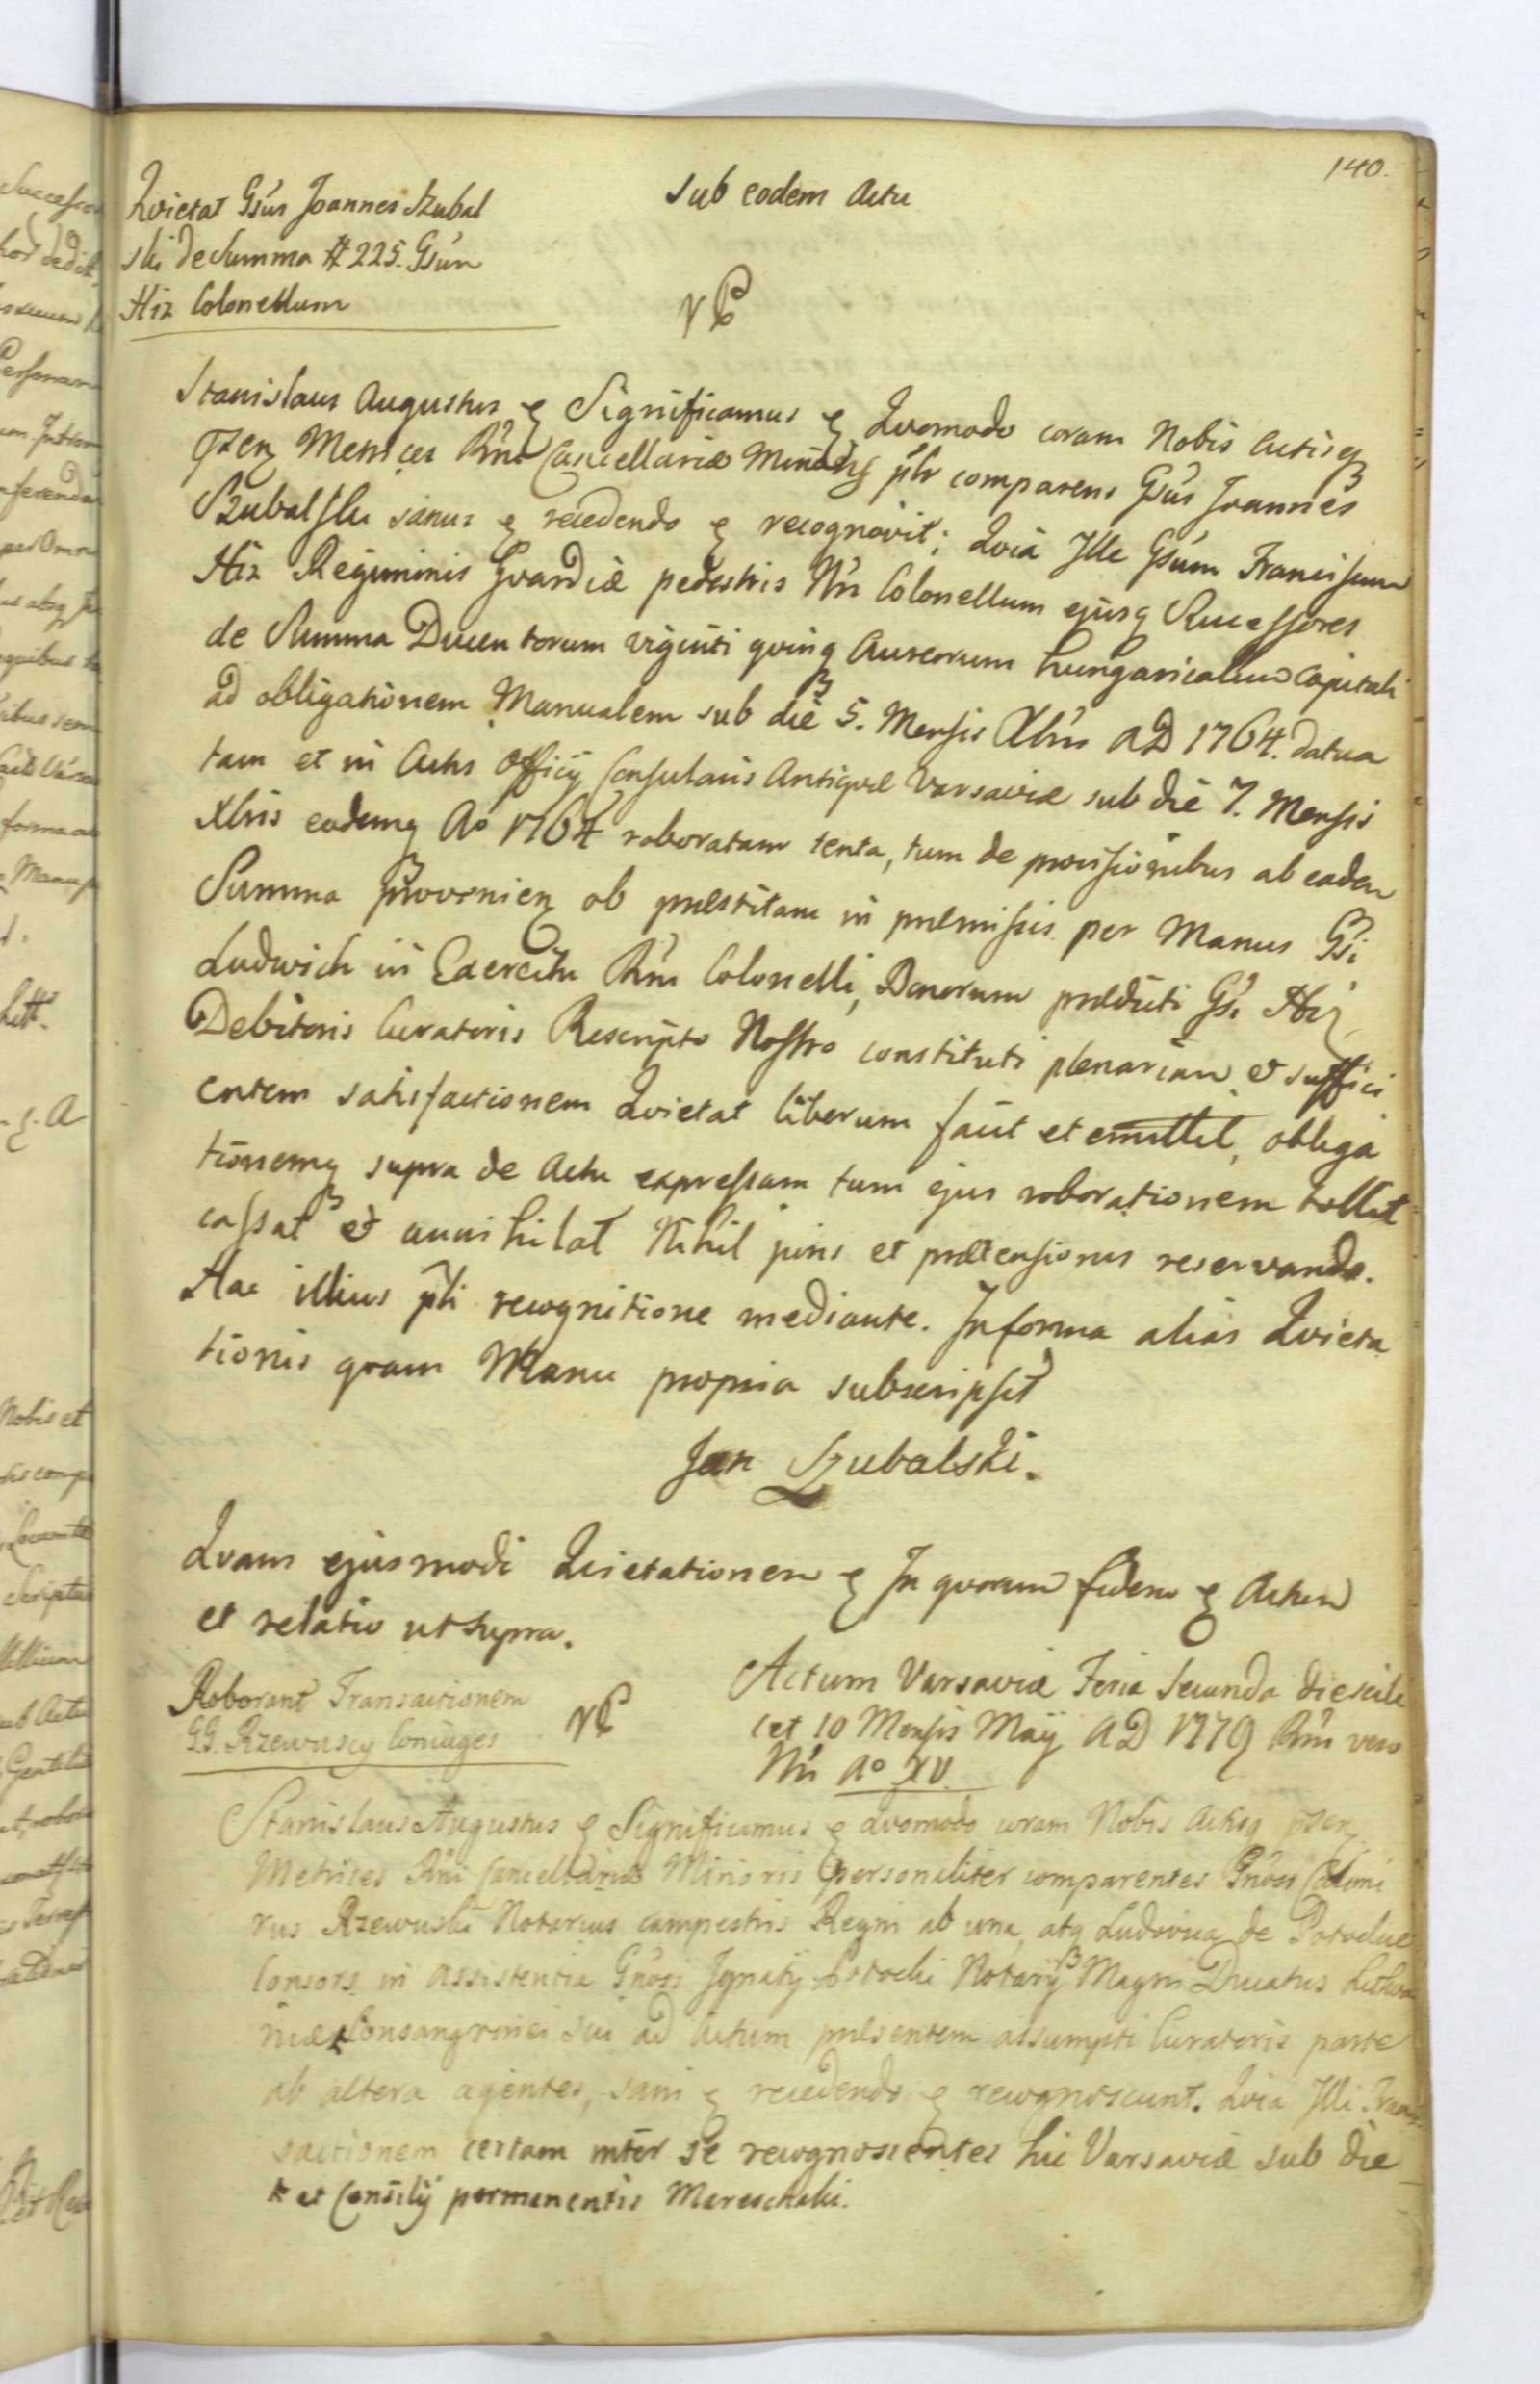 140.
Sub eodem Actu
Qvietat Gsus Joannes Szubal
ski de Summa # 225. Gsum
Hiz Colonellum
Stanislaus Augustus Significamus Qvomodo coram Nobis Actisq
pzen Metrices Rni Cancellariæ Minoris plr comparens Gsus Joannes
Szubalski sanus recedendo recognovit; Qvia Ille Gsum Franciscum
Hiz Regiminis Gvardiæ pedestris Rni Colonellum ejusq Successores
de Summa Ducentorum viginti qvinq Aureorum hungaricalium Capitali
ad obligationem Manualem sub die 5. Mensis Xbris AD 1764. datua
tam et in Actis Officij Consularis Antiqvæ Varsaviæ sub die 7. Mensis
Xbris eodemq Ao 1764 roboratam tenta, tum de provisionibus ab eadem
Summa provenien ob præstitam in præmissis per Manus Gsi
Ludwich in Exercitu Rni Colonelli, Bonorum prædicti Gsi Hiz
Debitoris Curatoris Rescripto Nostro constituti plenariam et suffici
entem satisfactionem Qvietat liberum facit et emittit, obliga
tionemq supra de Actu expressam tum ejus roborationem tollit
cassat et annihilat Nihil juris et prætensionis reservando.
Hac illius pli recognitione mediante. In forma alias Qvieta
tionis qvam Manu propria subscripsit
Jan Szubalski.
Qvam ejusmodi Qvietationem In qvorum fidem Actum
et relatio ut supra.
Roborant Transactionem
GG. Rzewuscy Coniuges
Actum Varsaviæ Feria Secunda die scili
cet 10 Mensis Maij AD 1779 Rni vero
Nri Ao XV
Stanislaus Augustus Significamus Qvomodo coram Nobis Actisq pzen
Metrices Rni Cancellariæ Minoris personaliter comparentes Gnosi
rus Rzewuski Notarius campestris Regni ab una, atq Ludovica de Potockie
Consors in assistentia Gnosi Ignatij Potocki Notarij Magni Ducatus Lithua
niæ Consangvinei sui ad Actum præsentem assumpti Curatoris parte
ab altera agentes, sani recedendo recognoscunt. Qvia Illi Tran
sactionem certam inter se recognoscentes hic Varsaviæ sub die
et Consilij permanentis Mareschalci.